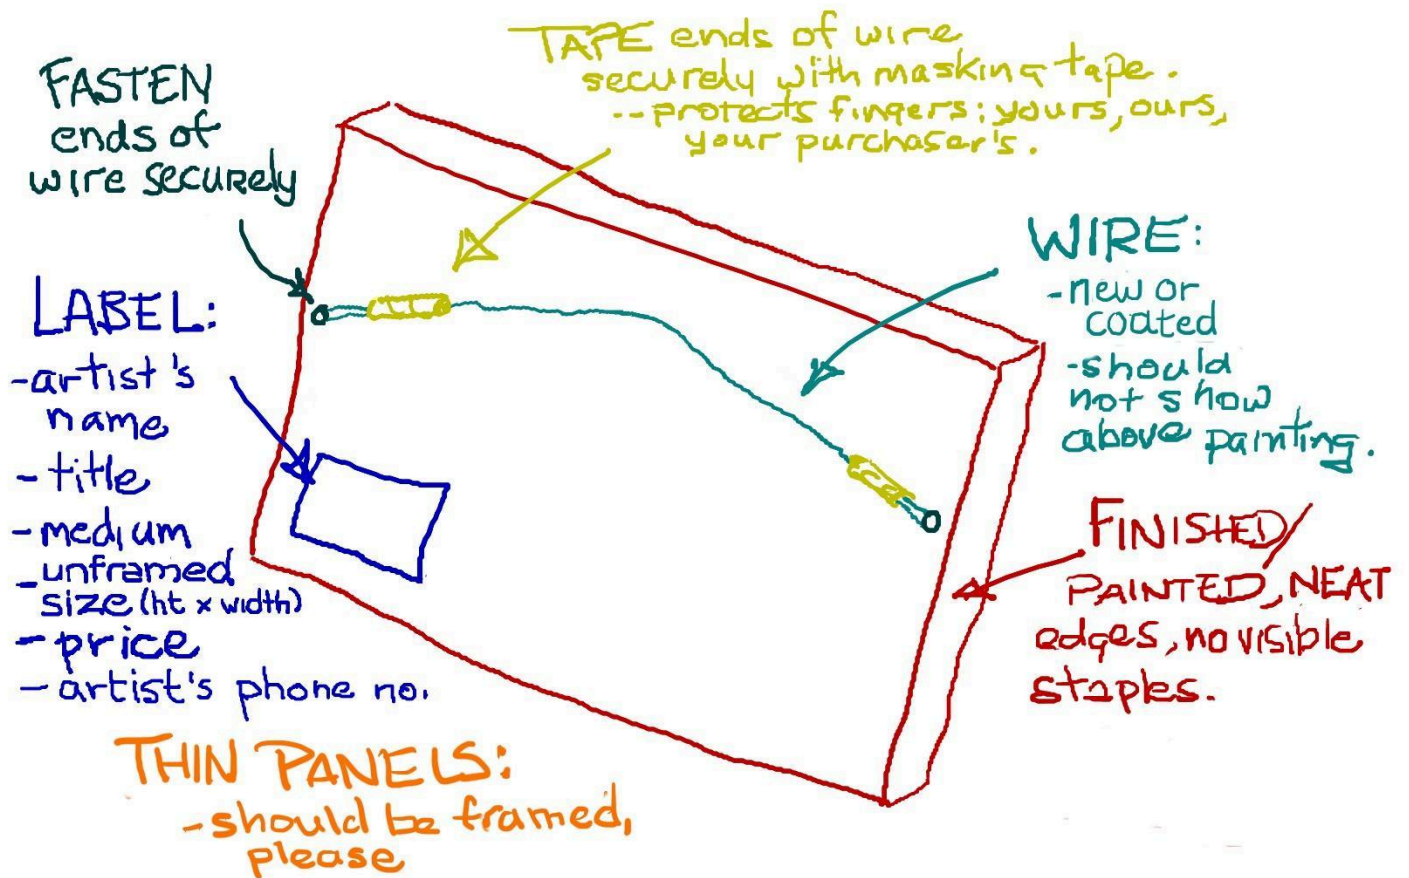 TAPE ends of wire
securely with masking tape.
-- protects fingers: yours, ours,
your purchaser's.
FASTEN
ends of
wire securely
WIRE:
- new or
coated
- should
not show
above painting.
LABEL:
- artist's
name
- title
- medium
- unframed
size (ht x width)
- price
- artist's phone no.
FINISHED/
PAINTED, NEAT
edges, no visible
staples.
THIN PANELS:
- should be framed,
please